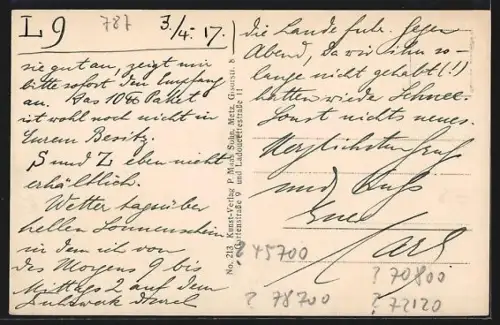 L 9
787
3./4. 17.
sie gut an, zeigt mir
bitte sofort den Empfang
an. Das 10te Paket
ist wohl noch nicht in
Eurem Besitz.
S und Z eben nicht
erhältlich.
Wetter tagsüber
hellen Sonnenschein
in dem ich von
des Morgens 9 bis
Mittags 2 auf dem
die Lande fuhr. Gegen
Abend, da wir ihn so
lange nicht gehabt (!!)
hatten wieder Schnee.
Sonst nichts neues.
Herzlichsten Gruß
und Kuß
Euer
Carl
No. 213 Kunst-Verlag P. Mann Söhne, Metz,
Gartenstraße 9 und Ladoucettestraße 11
? 45700
? 70800
? 78700
? 72120